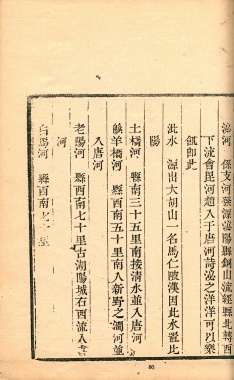 泌河　係支河發源泌陽縣銅山流經縣北轉西
下流會毘河趙入于唐河詩泌之洋洋可以樂
飢卽此
泚水　源出大胡山一名馬仁陂漢因此水置比
陽
土橋河　縣南三十五里南接清水並入唐河
䕸羊橋河　縣西南五十里南入新野之澗河並
入唐河
老陽河　縣西南七十里古湖陽城右西流入
河
白馬河　縣西南
80